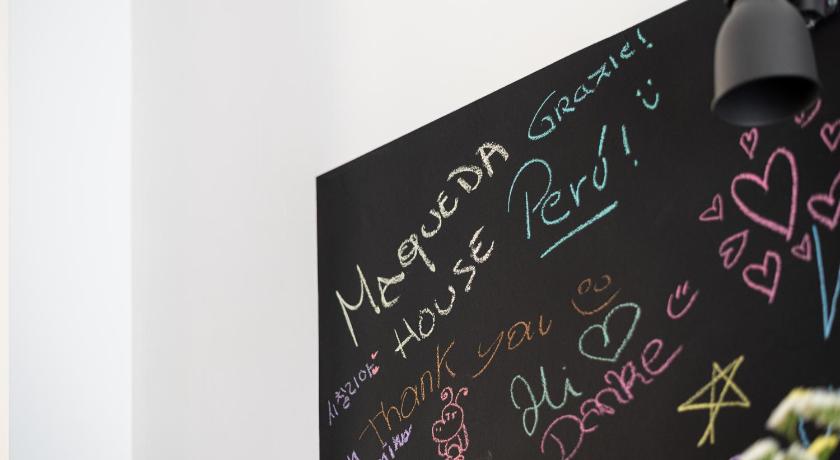 Grazie!
MaQUEDA
HOUSE
Perú!
Thank you
Hi
Danke